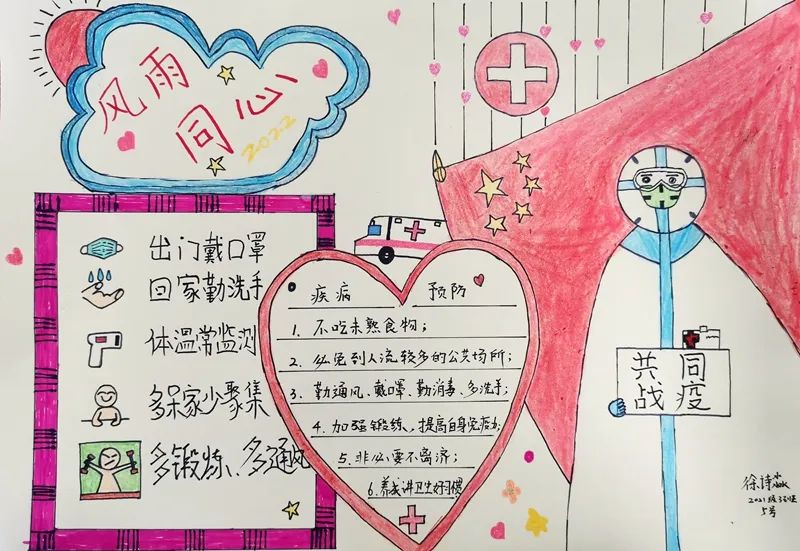 风雨
同心
2022
出门戴口罩
回家勤洗手
体温常监测
多呆家少聚集
多锻炼、多通风
疾病 预防
1. 不吃未熟食物;
2. 必免到人流较多的公共场所;
3. 勤通风、戴口罩、勤消毒、多洗手;
4. 加强锻练,提高自身免疫力;
5. 非必要不离济;
6. 养成讲卫生好习惯
共同
战疫
徐诗淼
5号